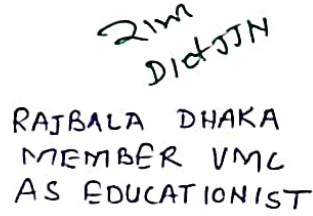 Dict JJN
RAJBALA DHAKA
MEMBER VMC
AS EDUCATIONIST